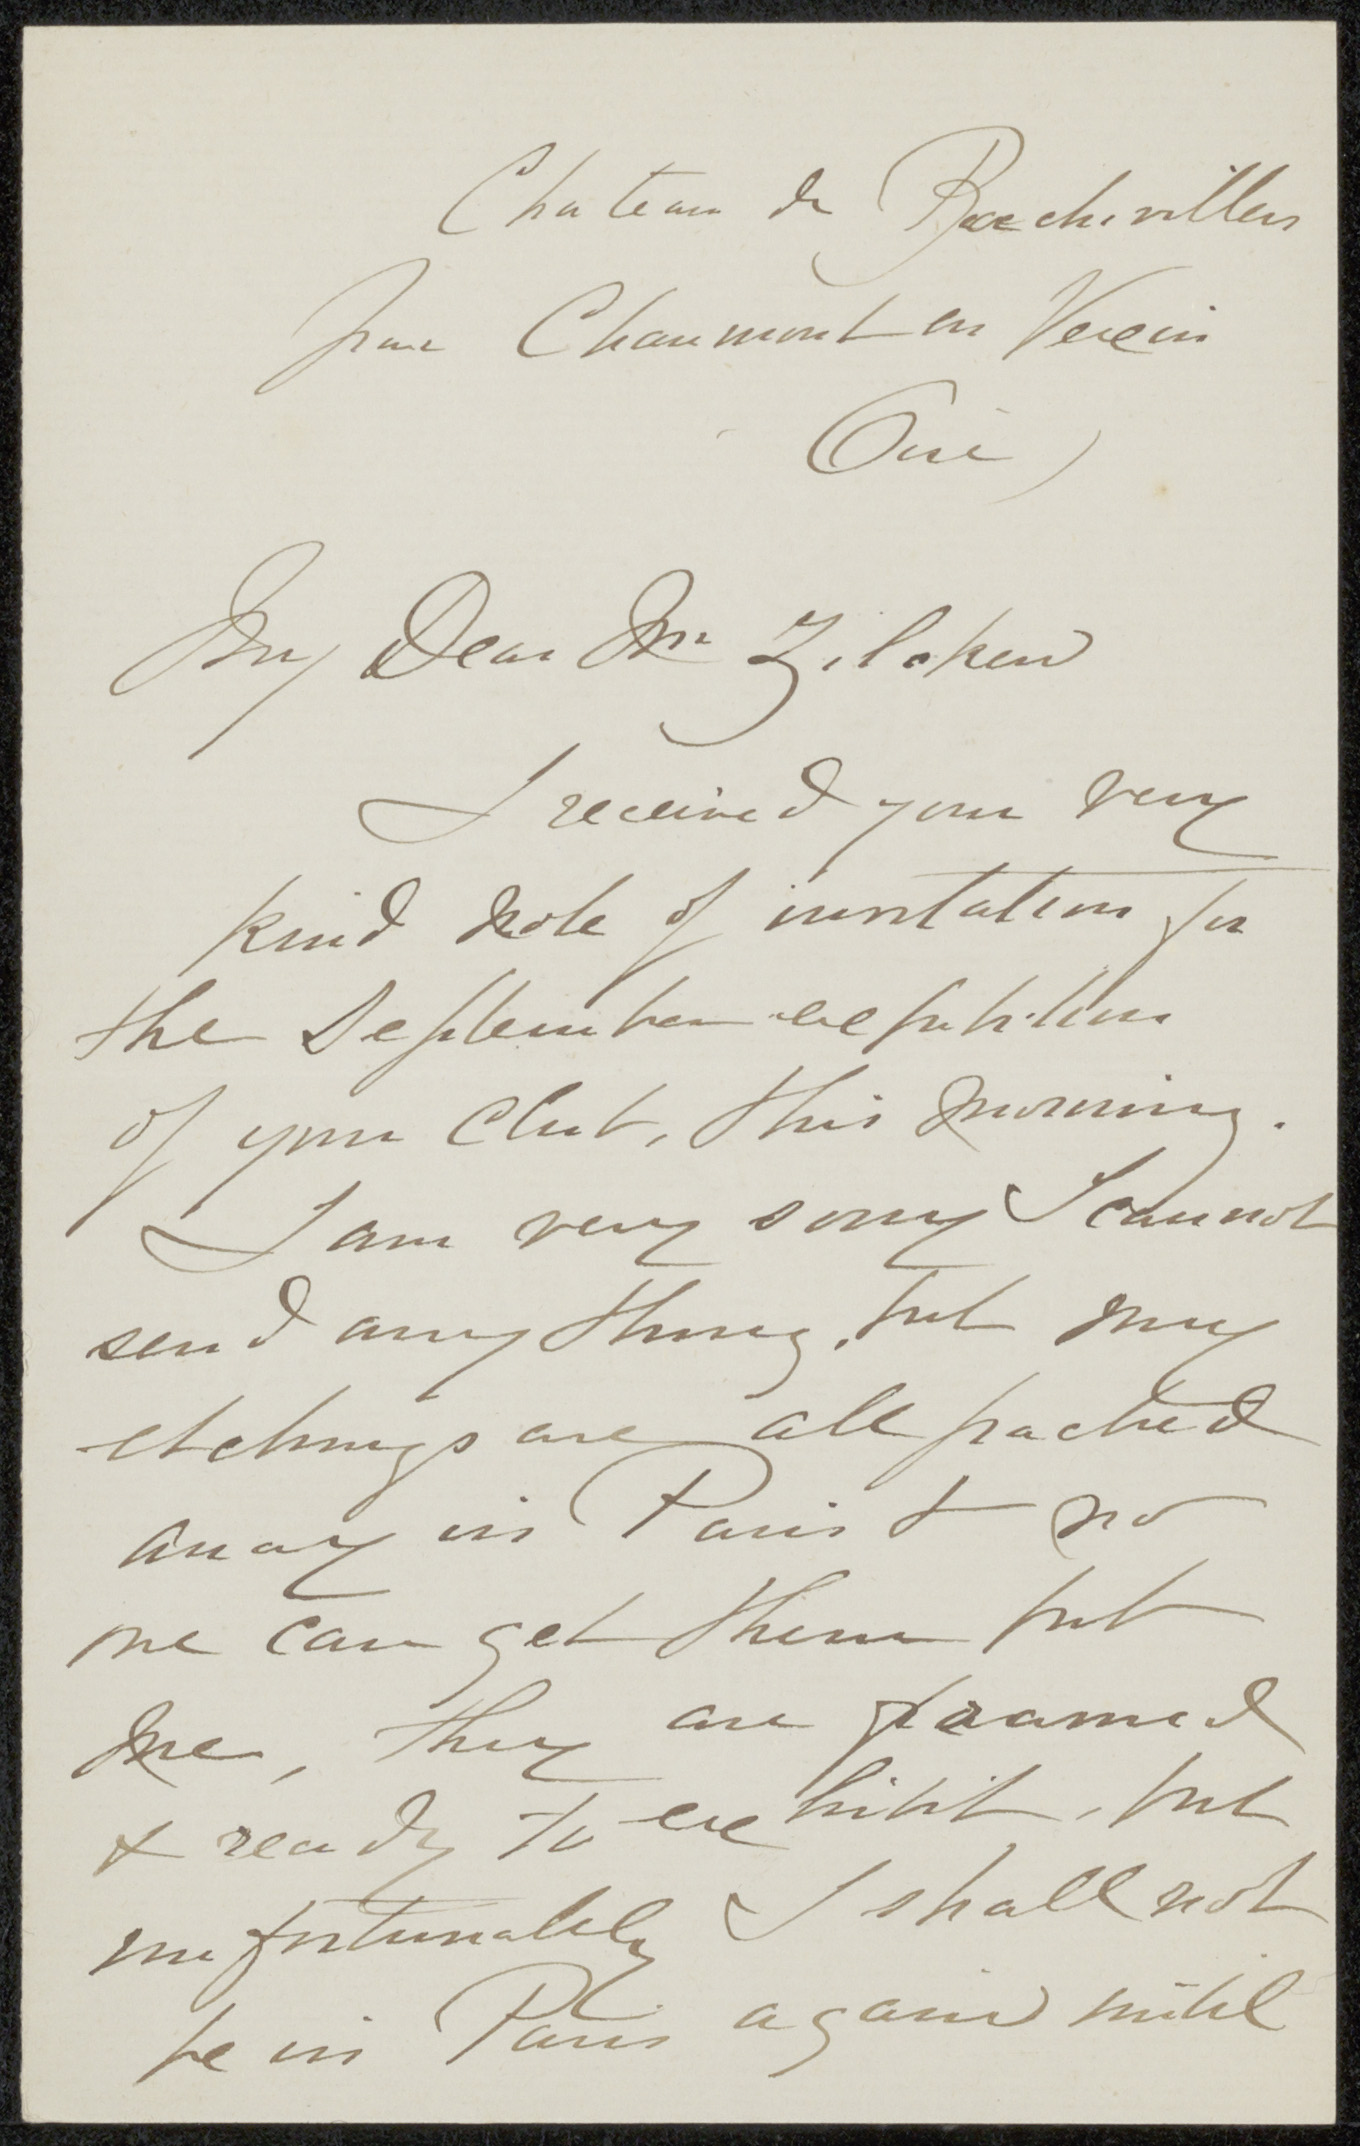 Chateau de Bachivillers
par Chaumont en Vexin
Oise)
My Dear Mr Zilcken
I received your very
kind note of invitation for
the September exhibition
of your Club, this morning.
I am very sorry I cannot
send anything, but my
etchings are all packed
away in Paris & no
one can get them but
me, they are framed
& ready to exhibit, but
unfortunately I shall not
be in Paris again until